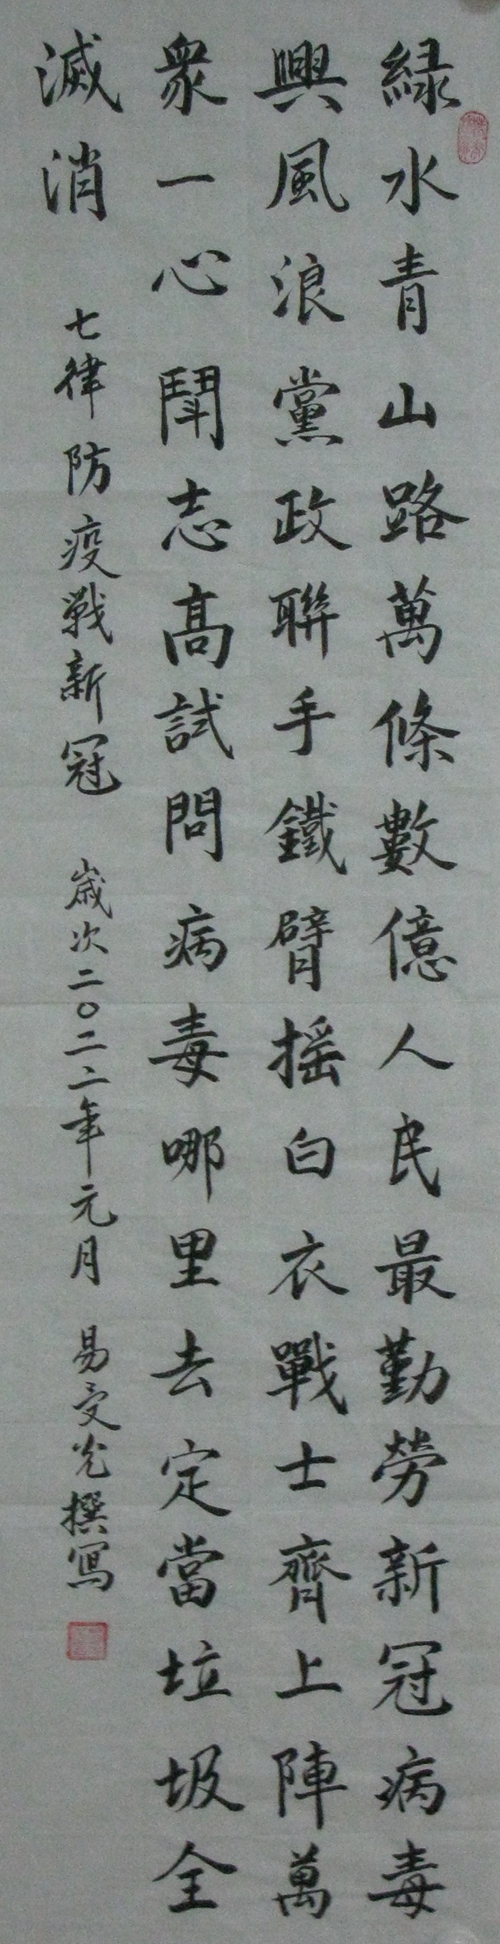 緑水青山路萬條數億人民最勤勞新冠病毒
興風浪黨政聯手鐵臂摇白衣戰士齊上陣萬
眾一心鬥志高試問病毒哪里去定當垃圾全
滅消
七律防疫戦新冠 歲次二〇二二年元月 易受光撰寫